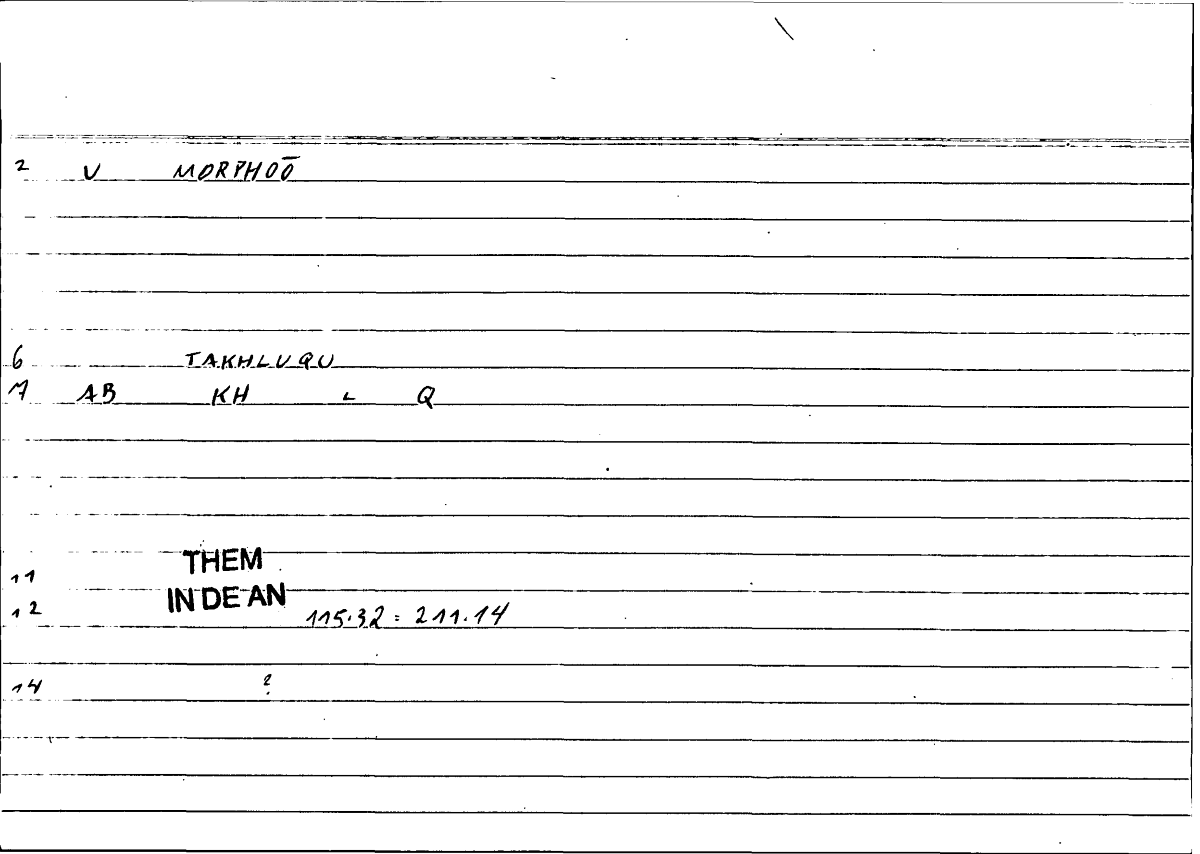 2 V MORPHOŌ
6 TAKHLUQU
7 AB KH L Q
THEM
11
IN DE AN
12 115.32 = 211.14
14 ?